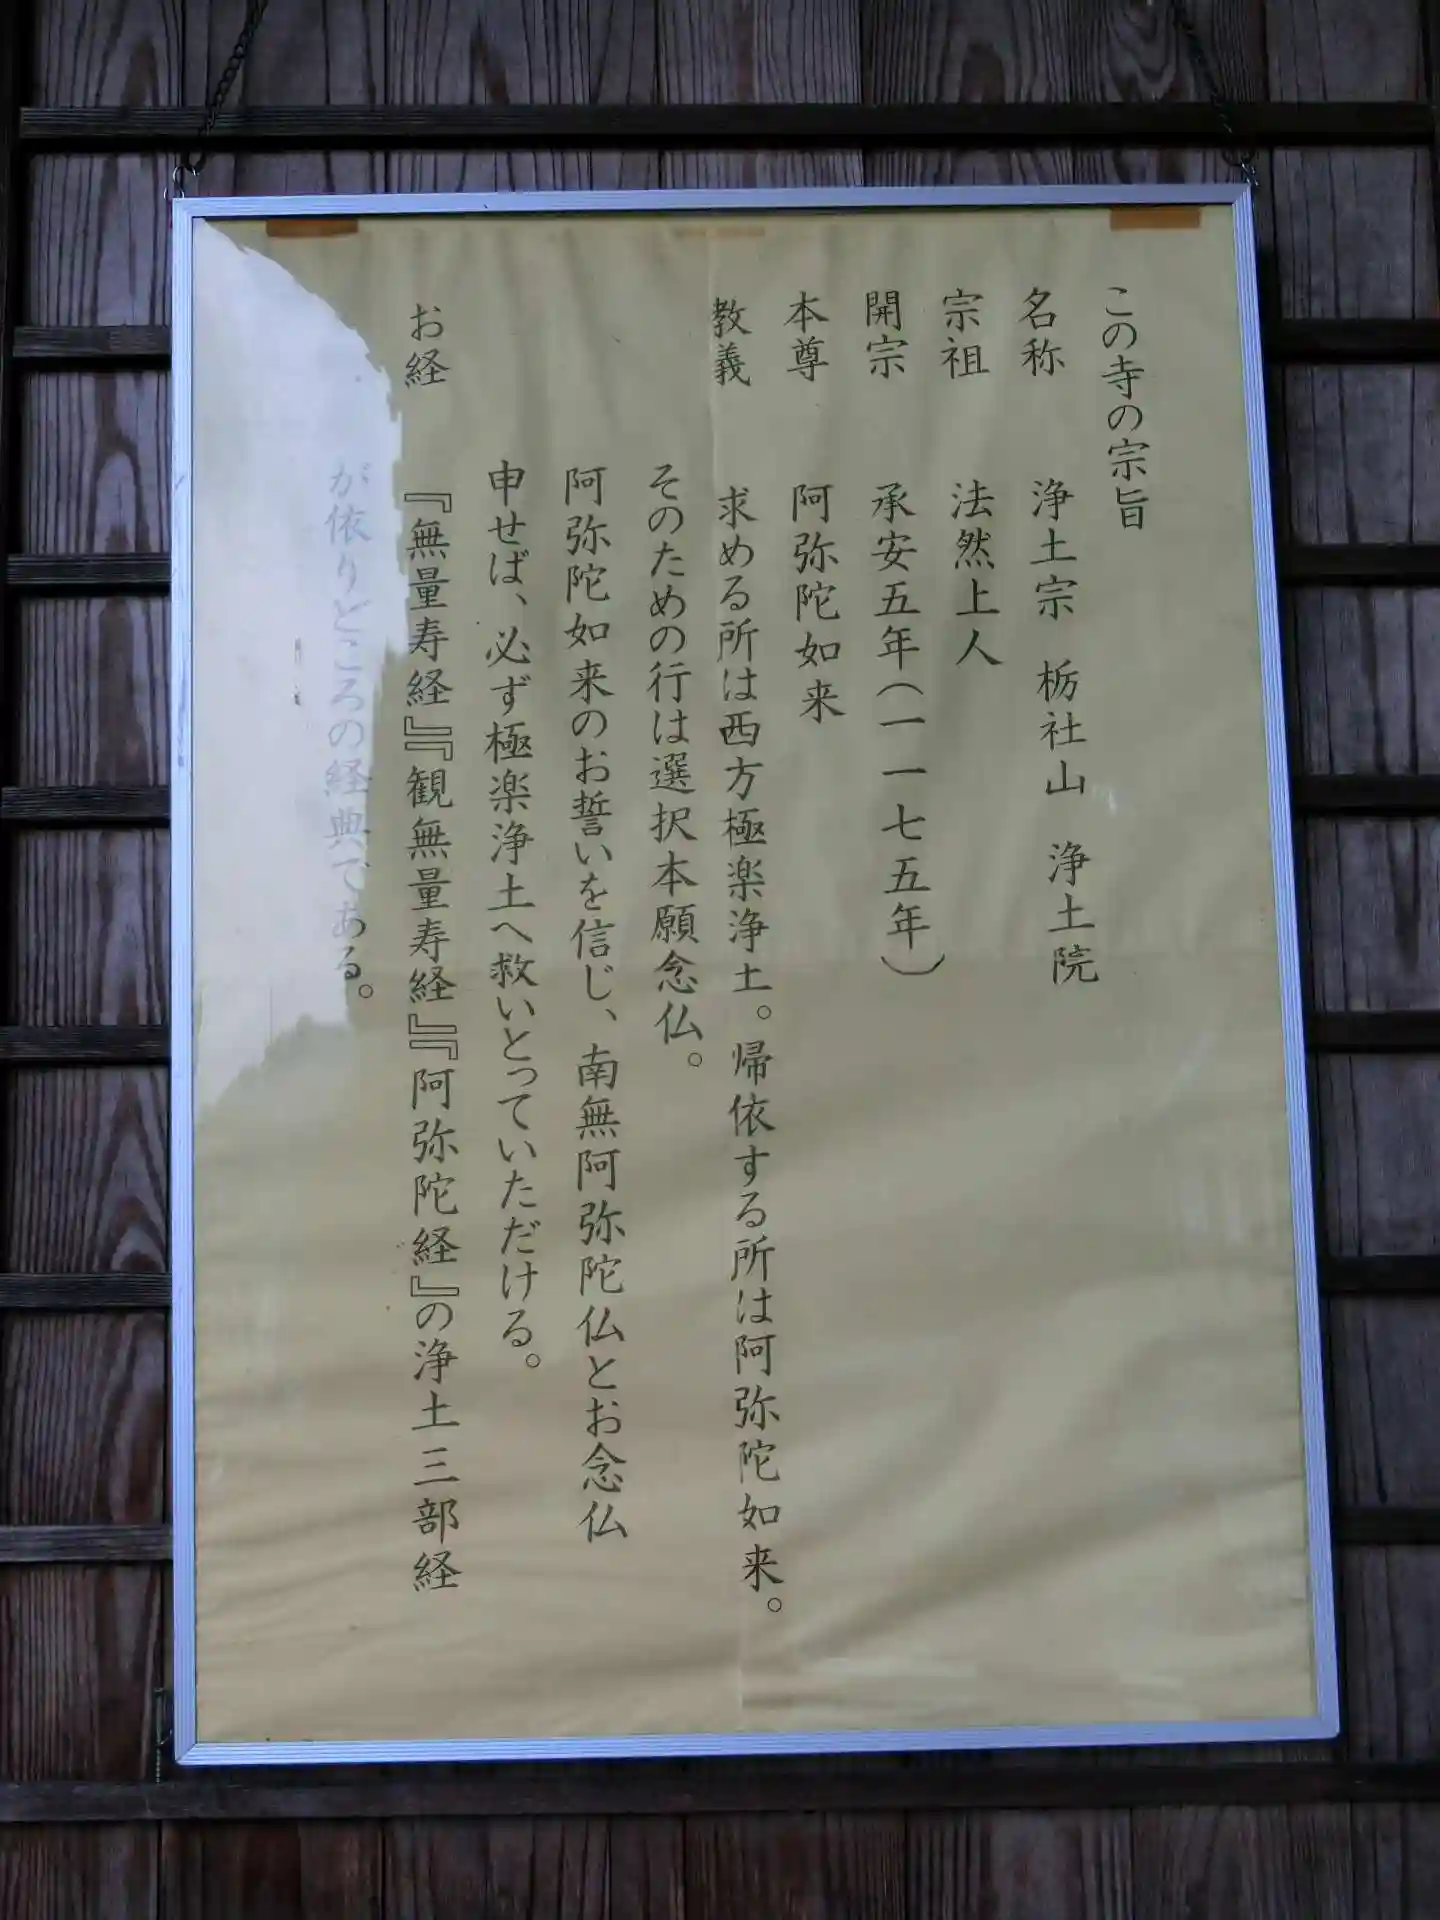 この寺の宗旨
名称　浄土宗　栃社山　浄土院
宗祖　法然上人
開宗　承安五年（一一七五年）
本尊　阿弥陀如来
教義　求める所は西方極楽浄土。帰依する所は阿弥陀如来。
そのための行は選択本願念仏。
阿弥陀如来のお誓いを信じ、南無阿弥陀仏とお念仏
申せば、必ず極楽浄土へ救いとっていただける。
お経　『無量寿経』『観無量寿経』『阿弥陀経』の浄土三部経
が依りどころの経典である。